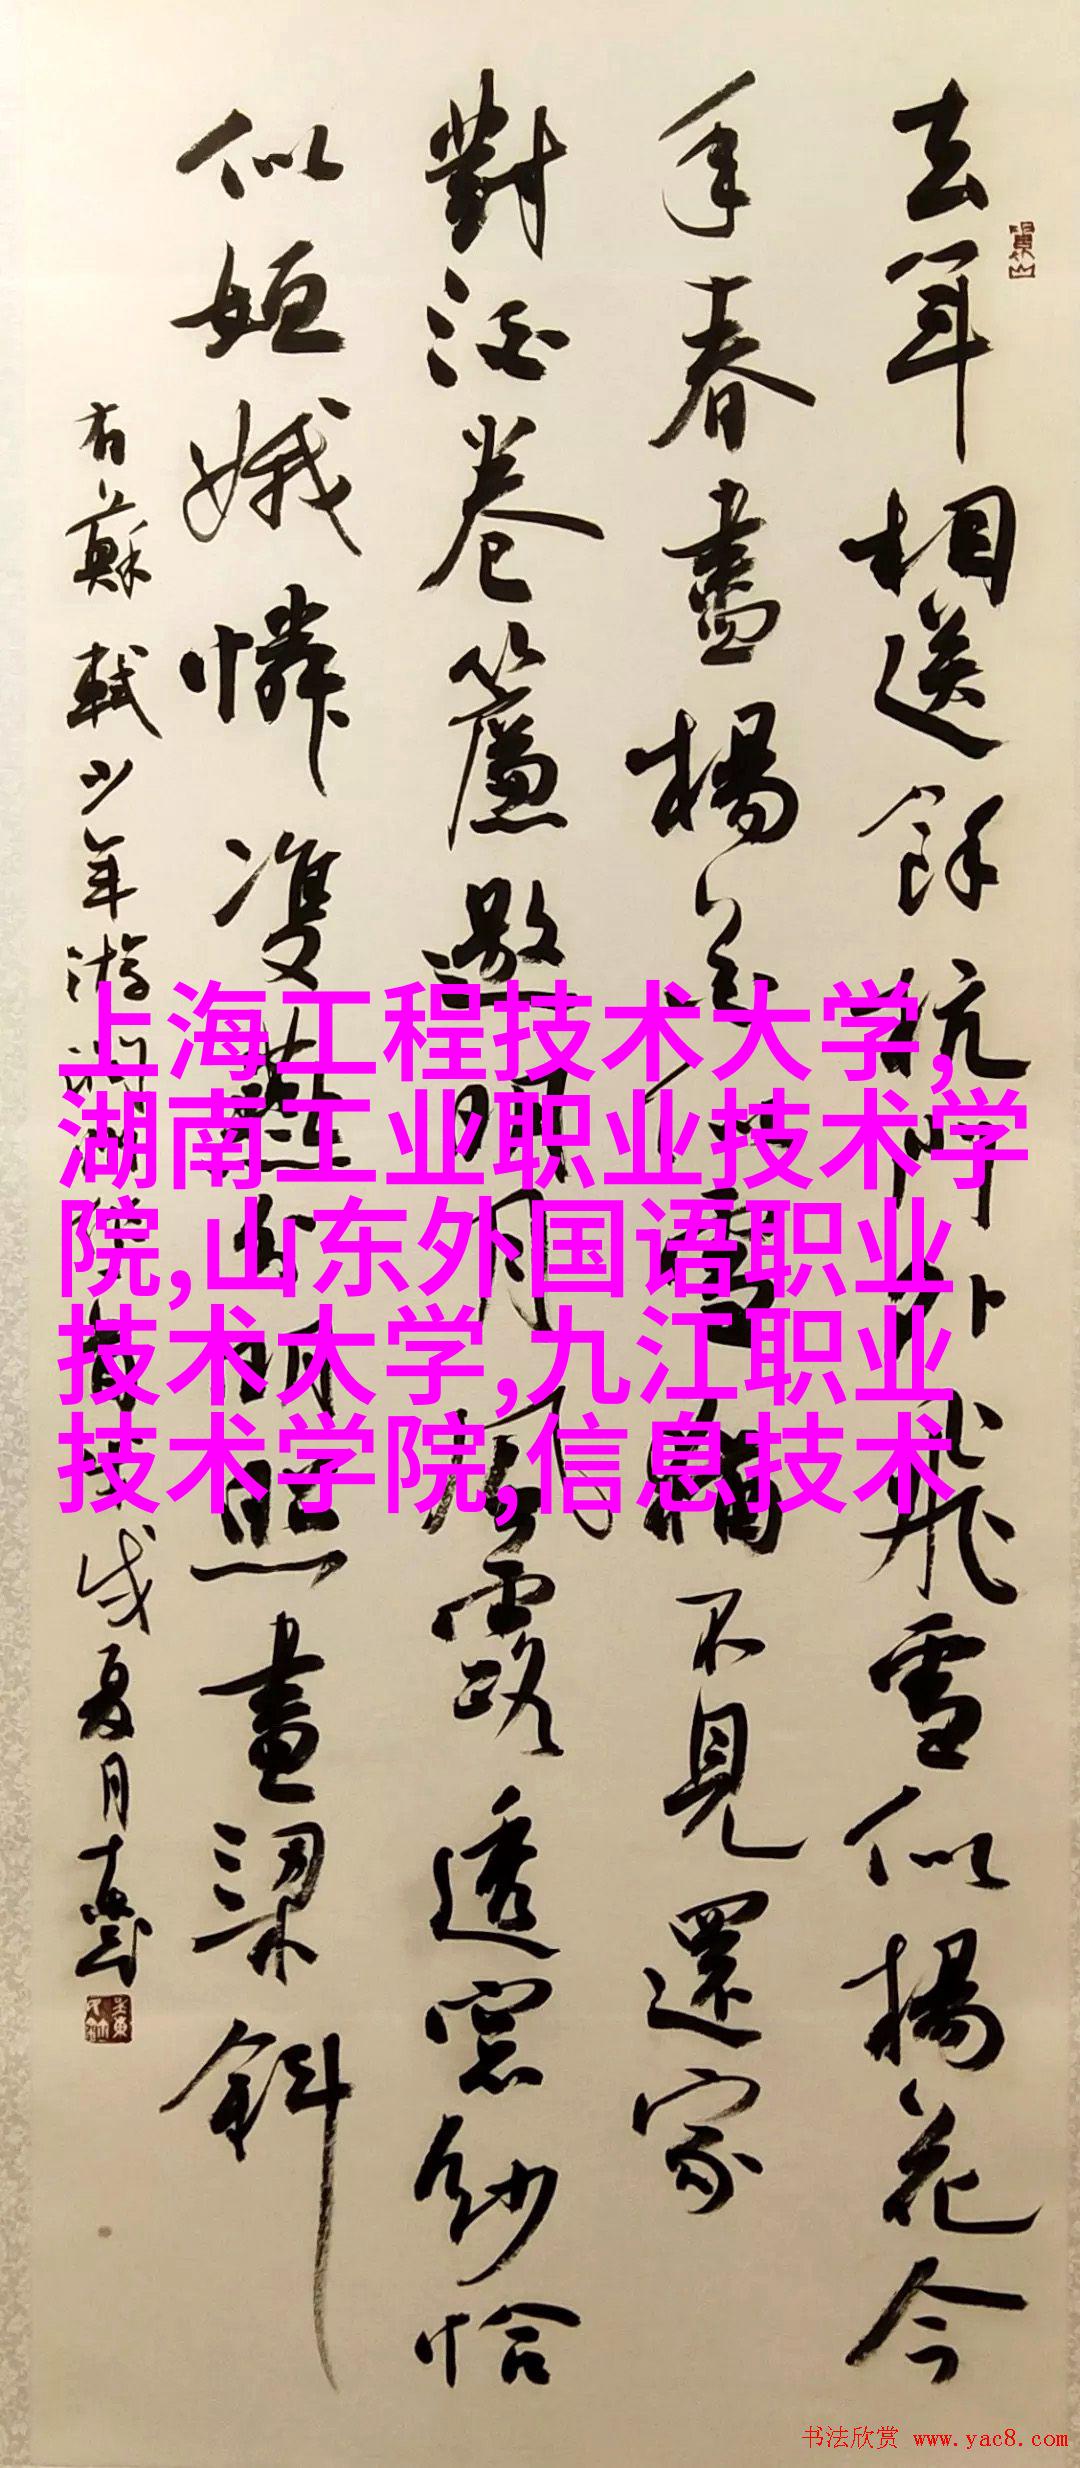 去年相送餘杭門外飛雪似楊花今
年春盡楊花似雪猶不見還家
對酒卷簾邀明月風露透窗紗恰
似姮娥憐雙燕分明照畫梁斜
右蘇軾少年游潤州
戌夏月
上海工程技术大学,
湖南工业职业技术学
院,山东外国语职业
技术大学,九江职业
技术学院,信息技术
书法欣赏 www.yac8.com